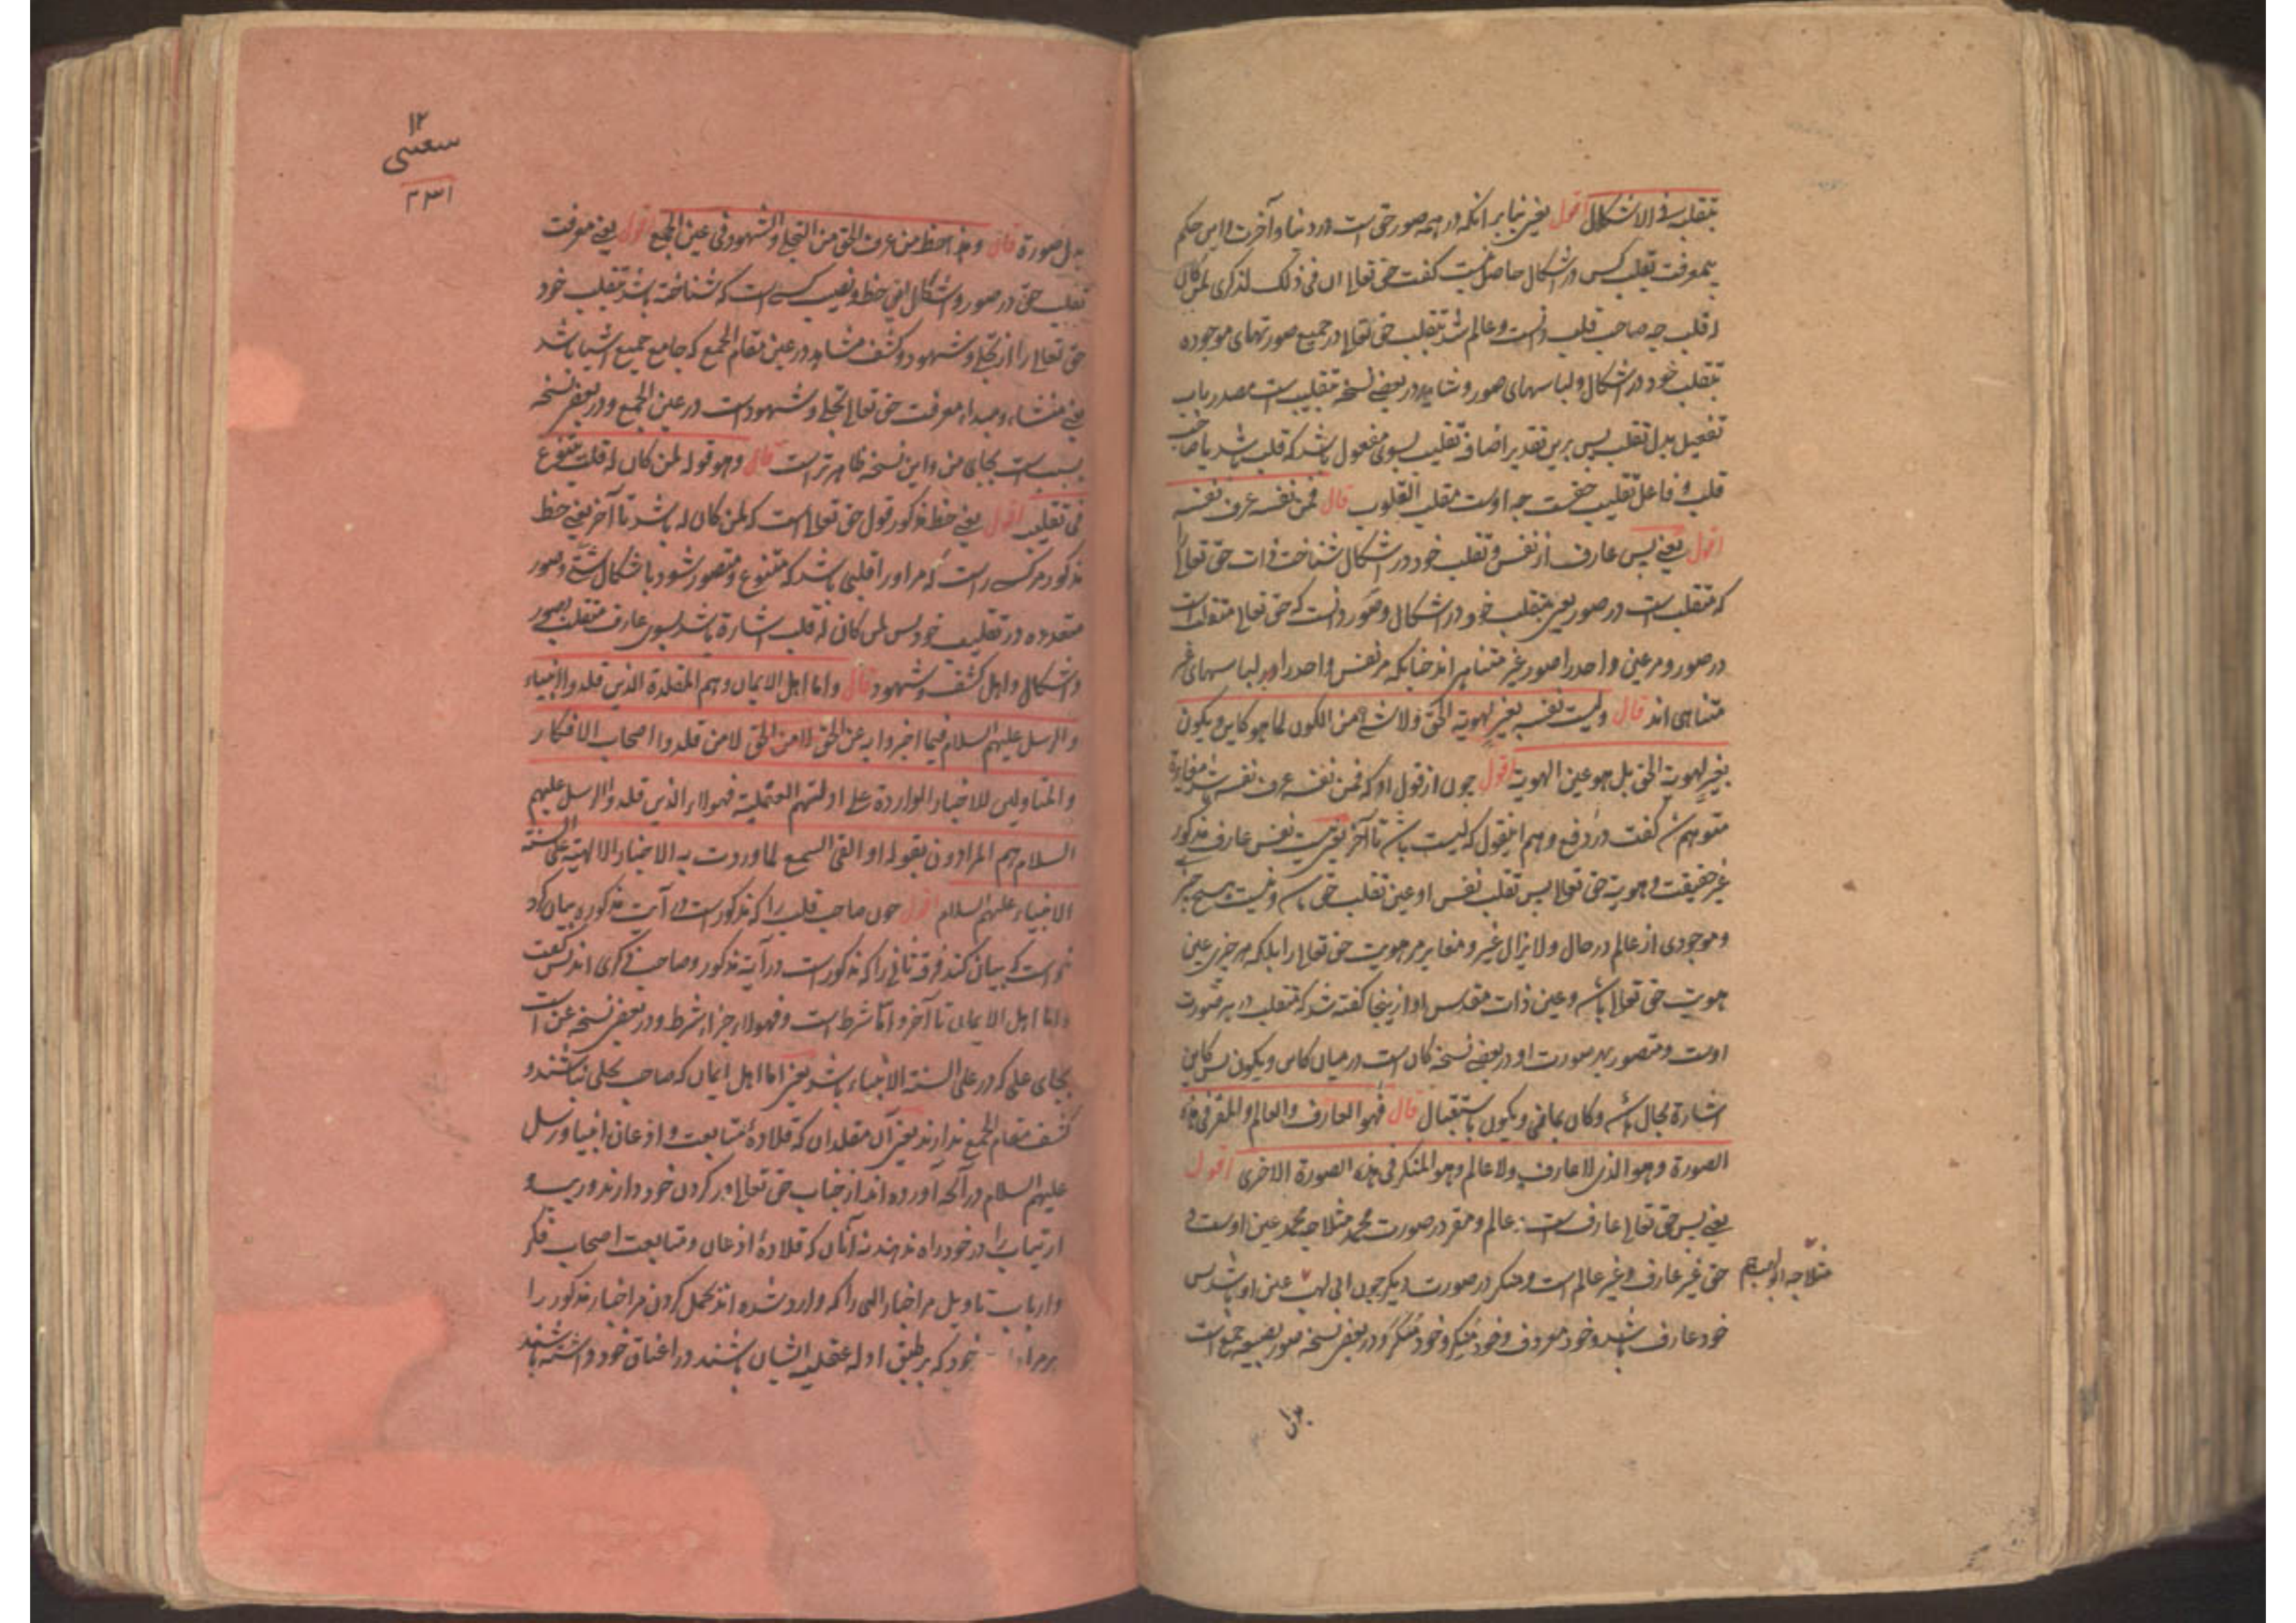 بتقلبه فی الاشکال اقول یعنی بنابر انکه در همه صور حق است در دنیا و آخرت و این حکم
بمعرفت تقلب کس در اشکال حاصل نیست گفت حق تعالی ان فی ذلک لذکری لمن کان
له قلب چه صاحب قلب دانست و عالم شد بتقلب حق تعالی در جمیع صورتهای موجوده
بتقلب خود در اشکال و لباسهای صور و شاید در بعضی نسخه تقلیب است مصدر باب
تفعیل بدل تقلب پس برین تقدیر اضافه تقلیب بسوی مفعول باشد که قلب باشد یا صاحب
قلب و فاعل تقلیب حق است چه اوست مقلب القلوب قال فمن نفسه عرف نفسه
اقول یعنی پس عارف از نفس و تقلب خود در اشکال شناخت ذات حق تعالی را
که متقلب است در صور یعنی بتقلب خود در اشکال و صور دانست که حق تعالی متقلب است
در صور و مر عین واحد را صور غیر متناهی اند چنانکه مر نفس واحد را در لباسهای غیر
متناهی اند قال ولیست نفسه بغیر لهویة الحق ولا شیء من الکون لما هو کاین ویکون
بغیر لهویة الحق بل هو عین الهویة اقول چون از قول او که فمن نفسه عرف نفسه مغایرة
متوهم شد گفت در دفع وهم اینقول که لیست باشد تا آخر یعنی نیست نفس عارف مذکور
غیر حقیقت و هویة حق تعالی پس تقلب نفس او عین تقلب حق باشد و نیست هیچ چیز
و موجودی از عالم در حال و لا یزال غیر و مغایر مر هویت حق تعالی را بلکه هر چیز عین
هویت حق تعالی باشد و عین ذات مقدس او ازینجا گفته شد که متقلب در هر صورت
اوست و متصور بهر صورت او در بعضی نسخه کان است در میان کاین ویکون پس کاین
اشارة بحال باشد و کان بماضی ویکون باستقبال قال فهو العارف والعالم والمقر فی هذه
الصورة وهو الذی لا عارف ولا عالم وهو المنکر فی هذه الصورة الاخری اقول
یعنی پس حق تعالی عارف است و عالم و مقر در صورت محمد مثلا چه محمد عین اوست و
حق غیر عارف و غیر عالم است و منکر در صورت دیگر چون ابی لهب عین او باشد پس
مثلا چه ابو لهب هم
خود عارف باشد و خود معروف و خود منکِر و خود منکَر و در بعضی نسخه صور بصیغه جمع است
بدل
۱۲
۳۳۱
بدل صورة قال وهذا حظ من عرف الحق من التجلی والشهود فی عین الجمع اقول یعنی معرفت
تقلب حق در صور و اشکال یعنی حظ و نصیب کسی است که شناخته باشد بتقلب خود
حق تعالی را از تجلی و شهود و کشف مشاهد در عین مقام الجمع که جامع جمیع اشیا باشد
یعنی منشاء و مبداء معرفت حق تعالی تجلی و شهود است در عین الجمع و در بعضی نسخه
بجای من و این نسخه ظاهرتر است قال وهو قوله لمن کان له قلب یتنوع
فی تقلیبه اقول یعنی حظ مذکور قول حق تعالی است که لمن کان له باشد تا آخر یعنی حظ
مذکور مر کسی راست که مر او را قلبی باشد که متنوع و متصور شود باشکال شتی و صور
متعدده در تقلیب خود پس لمن کان له قلب اشارة باشد بسوی عارف متقلب بصور
و اشکال و اهل کشف و شهود قال واما اهل الایمان وهم المقلدة الذین قلدوا الانبیاء
والرسل علیهم السلام فیما اخبروا به عن الحق لا من قلدوا اصحاب الافکار
والمتاولین للاخبار الواردة علی ادلتهم العقلیة فهولاء الذین قلدوا الرسل علیهم
السلام هم المرادون بقوله او القی السمع لما وردت به الاخبار الالهیة علی السنة
الانبیاء علیهم السلام اقول چون صاحب قلب را که مذکور است در آیت مذکوره بیان کرد
خواست که بیان کند فرقه ثانی را که مذکور است در آیة مذکور و صاحب ذکری اند پس گفت
واما اهل الایمان تا آخر و اما شرط است و فهولاء جزاء شرط و در بعضی نسخه عن است
بجای علی که در علی السنة الانبیاء باشد یعنی اما اهل ایمان که صاحب تجلی نباشند و
کشف مقام الجمع ندارند یعنی آن مقلدان که قلادۀ متابعت و اذعان انبیا و رسل
علیهم السلام در آنچه آورده اند از جناب حق تعالی در گردن خود دارند و ریب و
ارتیاب را در خود راه ندهند نه آنان که قلادۀ اذعان و متابعت اصحاب فکر
و ارباب تاویل مر اخبار الهی را که وارد شده اند بحمل کردن مر اخبار مذکور را
خود که بر طبق ادله عقلیه ایشان باشند در اعناق خود داشته باشند